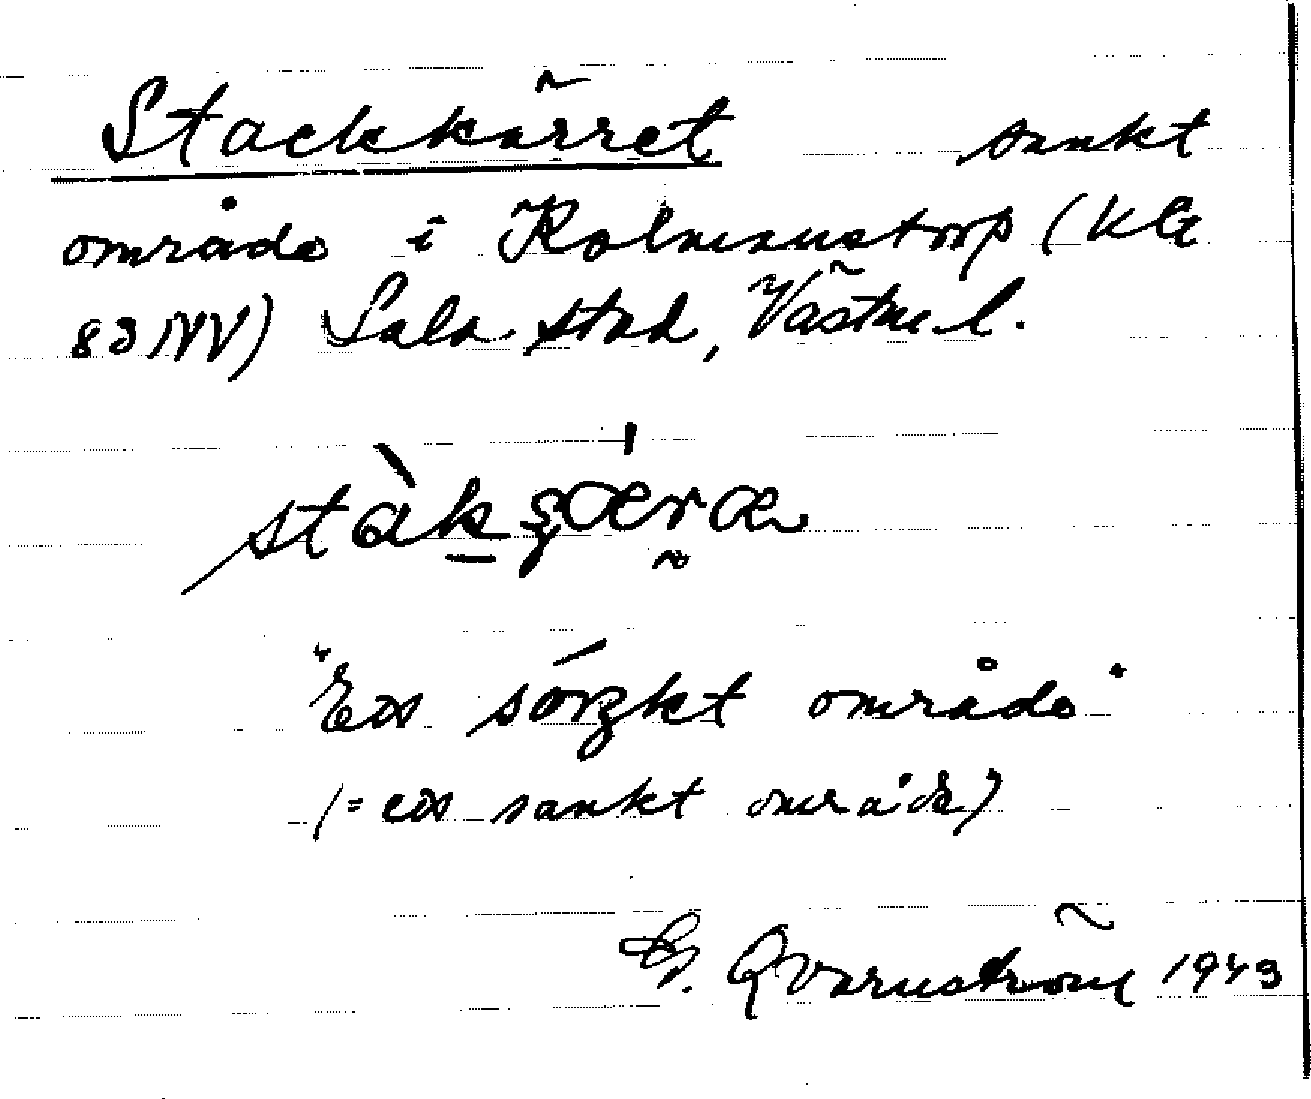 Stackkärret sankt
område i Kolmanstorp (KG
83 NV) Sala stad, Västml.
stàkʂæ̀ræ
"Eos sóŋkt område"
(= eos sankt område)
G. Qvarnström 1943